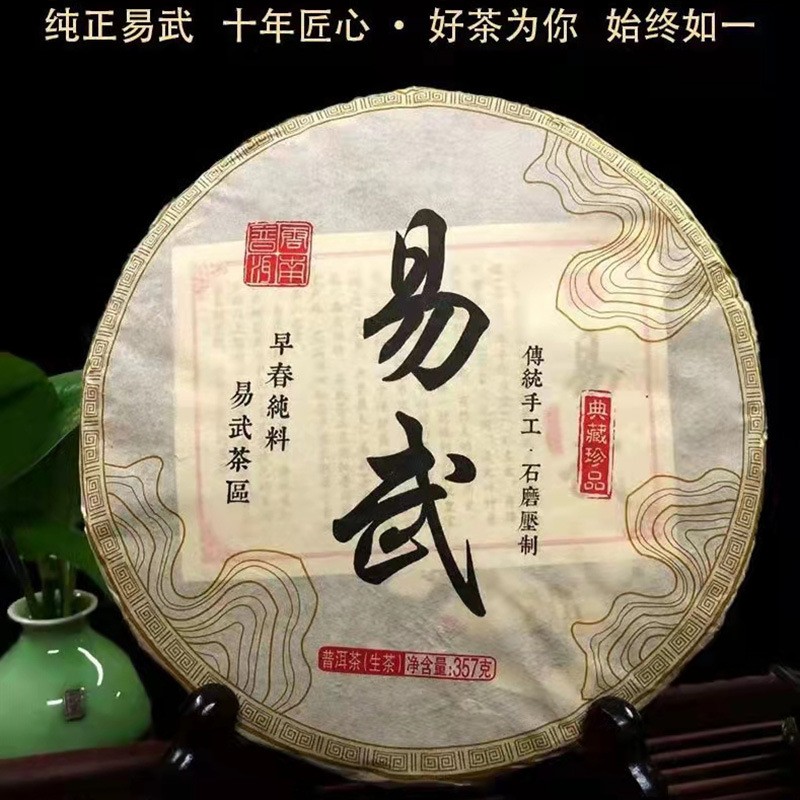 纯正易武 十年匠心·好茶为你 始终如一
雲南
普洱
易武
傳統手工·石磨壓制
典藏珍品
早春純料
易武茶區
普洱茶(生茶) 净含量:357克